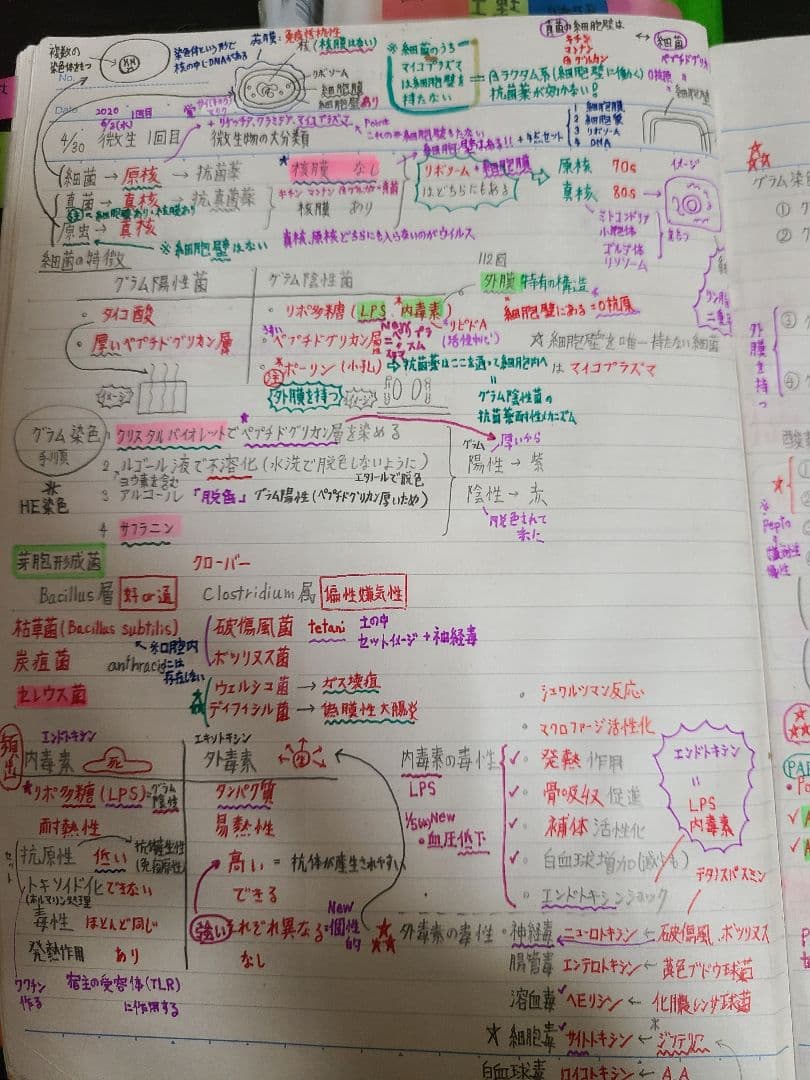 複数の
染色体をもつ
染色体という形で
核の中にDNAがある
莢膜:免疫抵抗性
核(核膜はない)
リボソーム
細胞膜
細胞壁 あり
※細菌のうち
マイコプラズマ
は細胞壁を
持たない
= βラクタム系(細胞壁に働く)
抗菌薬が効かない?
真菌の細胞壁は
キチン
マンナン
βグルカン
↔ 細菌
ペプチドグリ
O抗原
細胞壁
No.
Date 2020 1回目
6/2(火)
+ リケッチア,クラミジア,マイコプラズマ
Point
1 細胞膜
2 細胞壁
3 リボソーム
4 DNA
4/30 微生 1回目 微生物の大分類
細胞壁はある!! + 4点セット
細菌 → 原核 → 抗菌薬
核膜 なし
真菌 → 真核 → 抗真菌薬
キチン マンナン βグルカン=真菌
核膜 あり
※細胞膜あり・核膜あり
原虫 → 真核
※細胞壁はない
真核,原核どちらにも入らないのがウイルス
リボソーム + 細胞膜
はどちらにもある
原核 70s
真核 80s →
イメージ
ミトコンドリア
小胞体
ゴルジ体
リソソーム
をもつ
細菌の特徴
グラム陽性菌 グラム陰性菌
112回
外膜 特有の構造
細胞壁にある=O抗原
・タイコ酸
・リポ多糖(LPS 内毒素)
リピドA
(活性中心)
・厚いペプチドグリカン層
うすい
・ペプチドグリカン層
New
☆細胞壁を唯一持たない細菌
はマイコプラズマ
・ポーリン(小孔) ⇒抗菌薬はここを通って細胞内へ
イメージ
外膜を持つ
イメージ
グラム陰性菌の
抗菌薬耐性メカニズム
グラム染色
手順
1 クリスタルバイオレットでペプチドグリカン層を染める
2 ルゴール液で不溶化(水洗で脱色しないように)
ヨウ素を含む
エタノールで脱色
3 アルコール 「脱色」 グラム陽性(ペプチドグリカン厚いため)
4 サフラニン
※
HE染色
グラム
厚いから
陽性 → 紫
陰性 → 赤
脱色されて
赤に
芽胞形成菌
クローバー
Bacillus属 好or通 Clostridium属 偏性嫌気性
枯草菌(Bacillus subtilis)
破傷風菌 tetani 土の中
セットイメージ + 神経毒
炭疽菌 anthracis
※口腔内
には
存在しない
ボツリヌス菌
セレウス菌
ウェルシュ菌 → ガス壊疽
ディフィシル菌 → 偽膜性大腸炎
・シュワルツマン反応
・マクロファージ活性化
頻出
エンドトキシン
内毒素
エキソトキシン
外毒素
リポ多糖(LPS)=グラム
陰性
タンパク質
耐熱性 易熱性
セット
抗原性 低い
抗体産生性
(免疫原性)
高い = 抗体が産生されやすい
トキソイド化できない
(ホルマリン処理
できる
毒性 ほとんど同じ
強い それぞれ異なる=個性
的
New
発熱作用 あり なし
ワクチン
作る
宿主の受容体(TLR)
に作用する
内毒素の毒性
LPS
✓・発熱 作用
✓・骨吸収 促進
New
・血圧低下
✓・補体 活性化
✓・白血球増加(減少も)
・エンドトキシンショック
エンドトキシン
=
LPS
内毒素
テタノスパスミン
外毒素の毒性・神経毒 ニューロトキシン ← 破傷風,ボツリヌス
腸管毒 エンテロトキシン ← 黄色ブドウ球菌
溶血毒 ヘモリシン ← 化膿レンサ球菌
☆細胞毒 サイトトキシン ← ジフテリア
白血球毒 ロイコトキシン ← A.A
グラム染
① グ
② グ
リン脂
二重
外膜を持つ
③ グ
④ グ
酸素